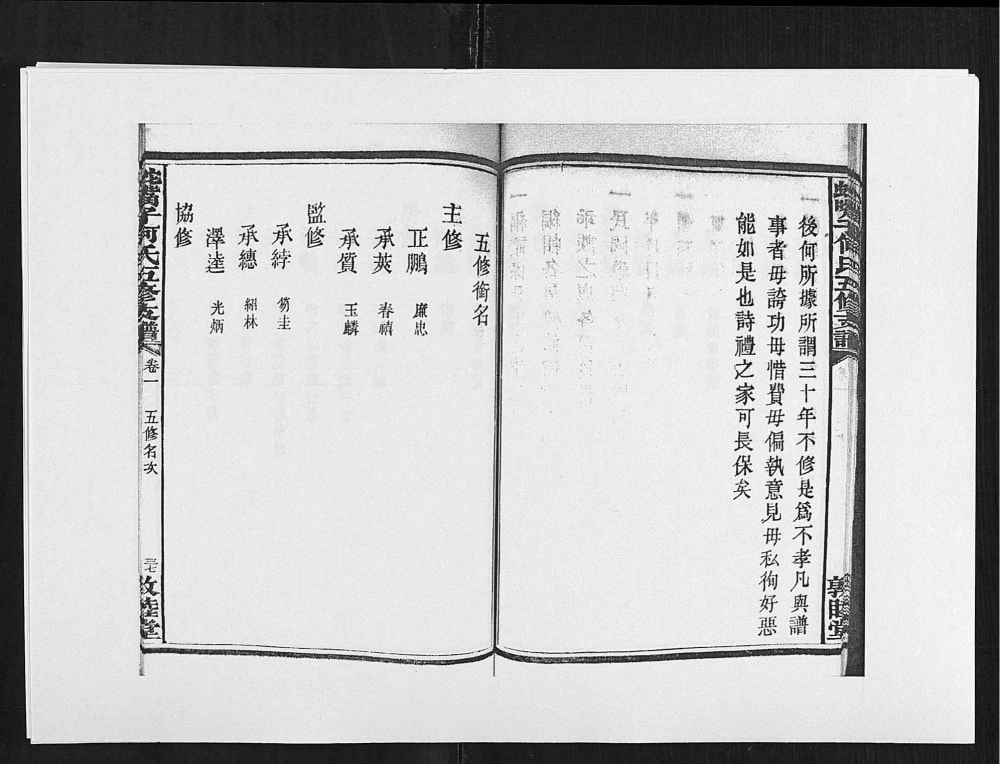 後何所據所謂三十年不修是爲不孝凡與譜
事者毋誇功毋惜費毋偏執意見毋私徇好惡
能如是也詩禮之家可長保矣
敦睦堂
五修銜名
主修
正鵬 廉忠
承莢 春禧
承質 玉麟
監修
承綍 笏圭
承繐 紹林
澤逵 光炳
協修
子何氏五修支譜
卷一
五修名次
三七
敦睦堂